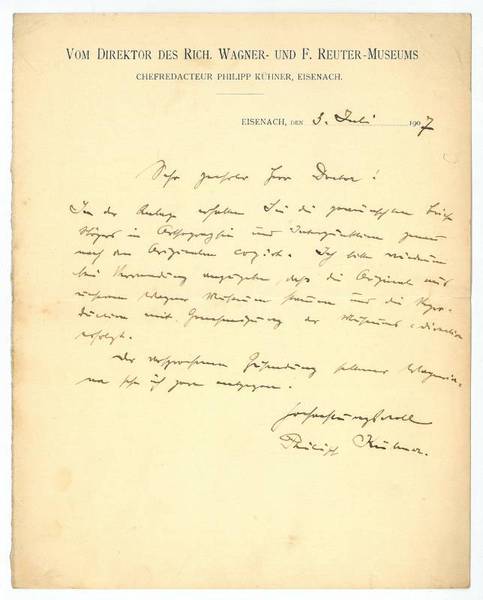 VOM DIREKTOR DES RICH. WAGNER- UND F. REUTER-MUSEUMS
CHEFREDACTEUR PHILIPP KÜHNER, EISENACH.
EISENACH, DEN 3. Juli 1907
Sehr geehrter Herr Doctor!
In der Anlage erhalten Sie die gewünschten Brief
in Orthographie und Interpunktion genau
nach den Originalen copirt. Ich bitte wiederum
bei Verwendung anzugeben, daß die Originale aus
unserem Wagner Museum stammen und die Repro-
duction mit Genehmigung der Museums-direction
erfolgt.
Der versprochenen Zusendung seltener Wagneria-
na sehe ich gern entgegen.
Hochachtungsvoll
Philipp Kühner.